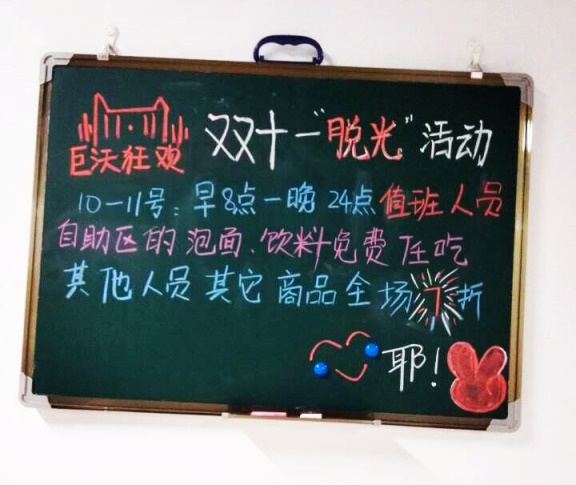 巨沃狂欢
双十一"脱光"活动
10-11号:早8点-晚24点值班人员
自助区的泡面、饮料免费任吃
其他人员其它商品全场7折
耶!